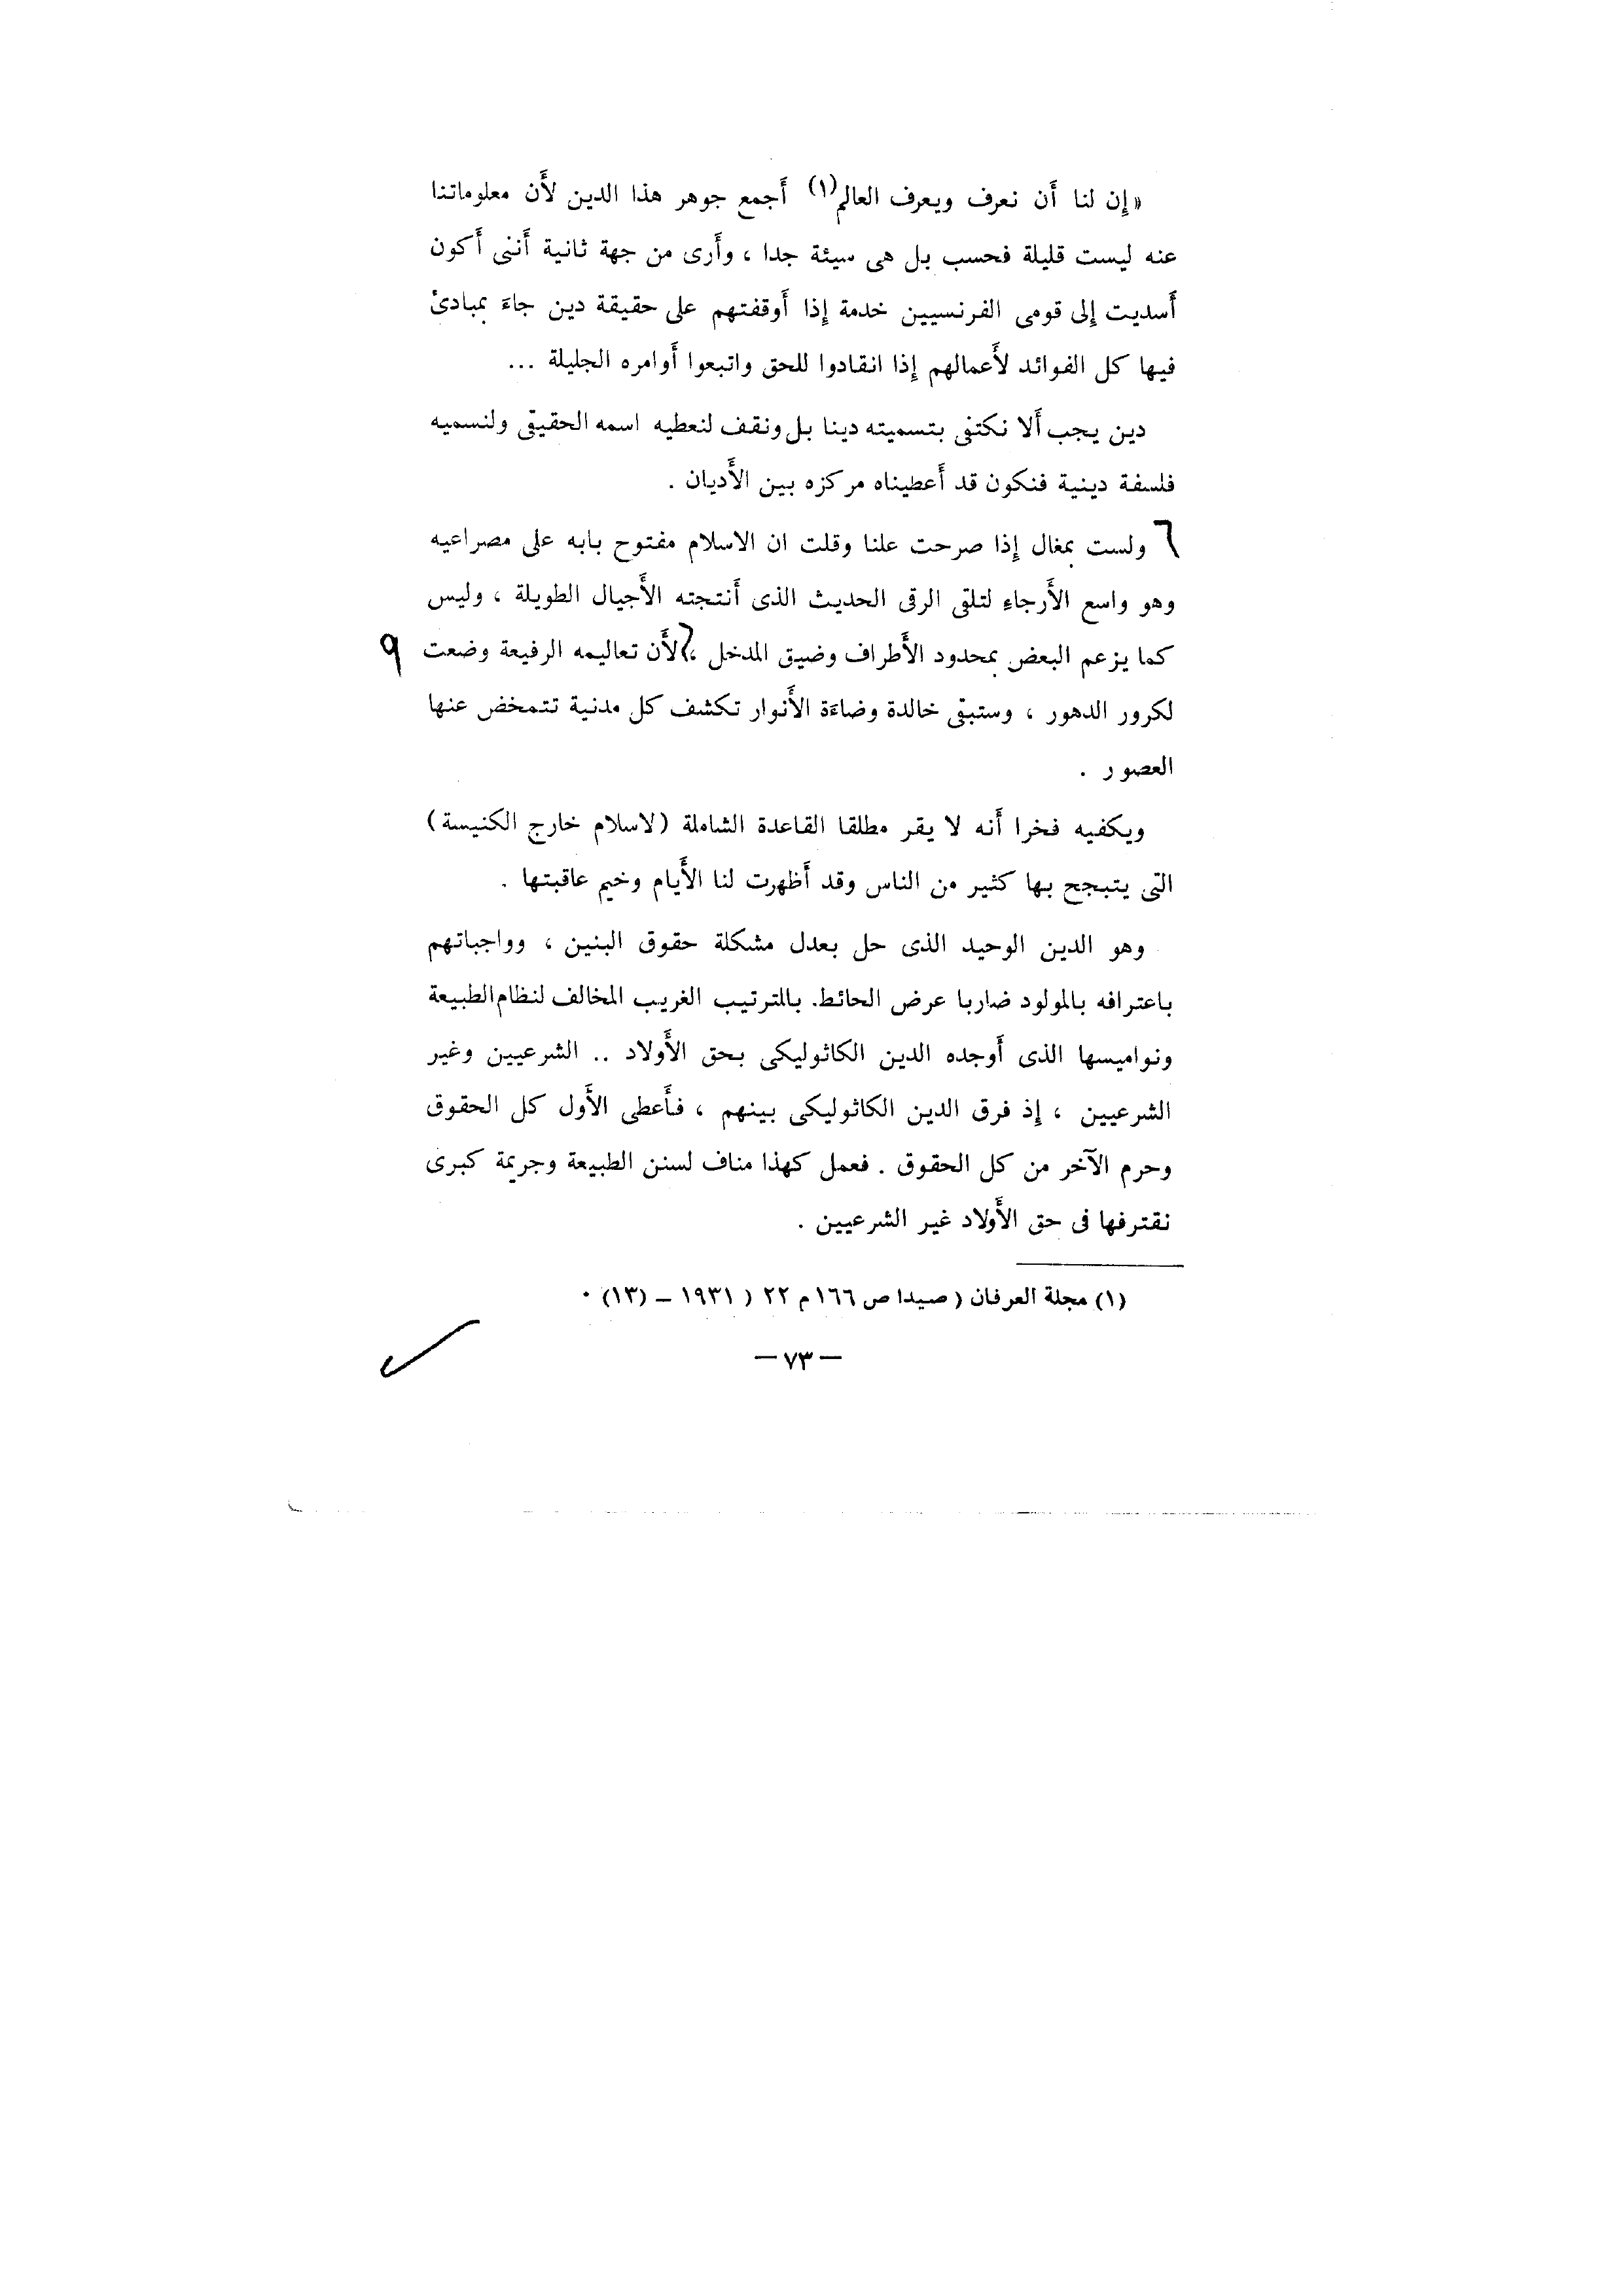 «إن لنا أن نعرف ويعرف العالم(١) أجمع جوهر هذا الدين لأن معلوماتنا
عنه ليست قليلة فحسب بل هى سيئة جدا ، وأرى من جهة ثانية أننى أكون
أسديت إلى قومى الفرنسيين خدمة إذا أوقفتهم على حقيقة دين جاء بمبادئ
فيها كل الفوائد لأعمالهم إذا انقادوا للحق واتبعوا أوامره الجليلة ...
دين يجب ألا نكتفى بتسميته دينا بل ونقف لنعطيه اسمه الحقيقى ولنسميه
فلسفة دينية فنكون قد أعطيناه مركزه بين الأديان .
ولست بمغال إذا صرحت علنا وقلت ان الاسلام مفتوح بابه على مصراعيه
وهو واسع الأرجاء لتلقى الرقى الحديث الذى أنتجته الأجيال الطويلة ، وليس
كما يزعم البعض بمحدود الأطراف وضيق المدخل ، لأن تعاليمه الرفيعة وضعت
٩
لكرور الدهور ، وستبقى خالدة وضاءة الأنوار تكشف كل مدنية تتمخض عنها
العصور .
ويكفيه فخرا أنه لا يقر مطلقا القاعدة الشاملة (لاسلام خارج الكنيسة)
التى يتبجح بها كثير من الناس وقد أظهرت لنا الأيام وخيم عاقبتها .
وهو الدين الوحيد الذى حل بعدل مشكلة حقوق البنين ، وواجباتهم
باعترافه بالمولود ضاربا عرض الحائط. بالترتيب الغريب المخالف لنظام الطبيعة
ونواميسها الذى أوجده الدين الكاثوليكى بحق الأولاد .. الشرعيين وغير
الشرعيين ، إذ فرق الدين الكاثوليكى بينهم ، فأعطى الأول كل الحقوق
وحرم الآخر من كل الحقوق . فعمل كهذا مناف لسنن الطبيعة وجريمة كبرى
نقترفها فى حق الأولاد غير الشرعيين .
(١) مجلة العرفان ( صيدا ص ١٦٦ م ٢٢ ( ١٩٣١ – (١٣) ٠
— ٧٣ —